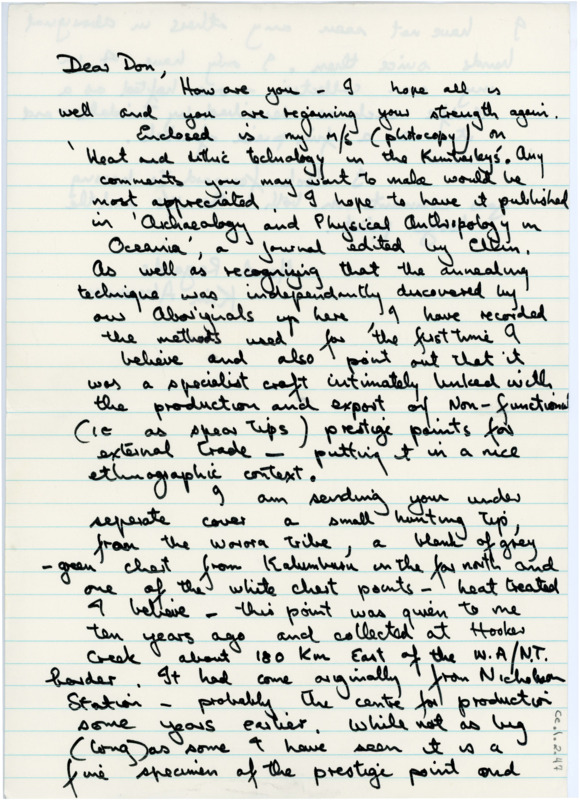 Dear Don,
How are you - I hope all is
well and you are regaining your strength again.
Enclosed is my M/S (photocopy) on
'Heat and Lithic technology in the Kimberleys'. Any
comments you may want to make would be
most appreciated. I hope to have it published
in 'Archaeology and Physical Anthropology in
Oceania', a journal edited by
As well as recognizing that the annealing
technique was independantly discovered by
our Aboriginals up here I have recorded
the methods used for the first time I
believe and also point out that it
was a specialist craft intimately linked with
the production and export of Non-functional
(ie as spear tips) prestige points for
external trade - putting it in a nice
ethnographic context.
I am sending you under
seperate cover a small hunting tip,
from the Worora tribe, a blank of grey
-green chert from Kalumburu in the far north and
one of the white chert points - heat treated
I believe - this point was given to me
ten years ago and collected at Hooker
Creek about 180 Km East of the W.A/N.T.
border. It had come originally from Nicholson
Station - probably the centre for production
some years earlier. While not as big
(long) as some I have seen it is a
fine specimen of the prestige point and
cc.1.2.47